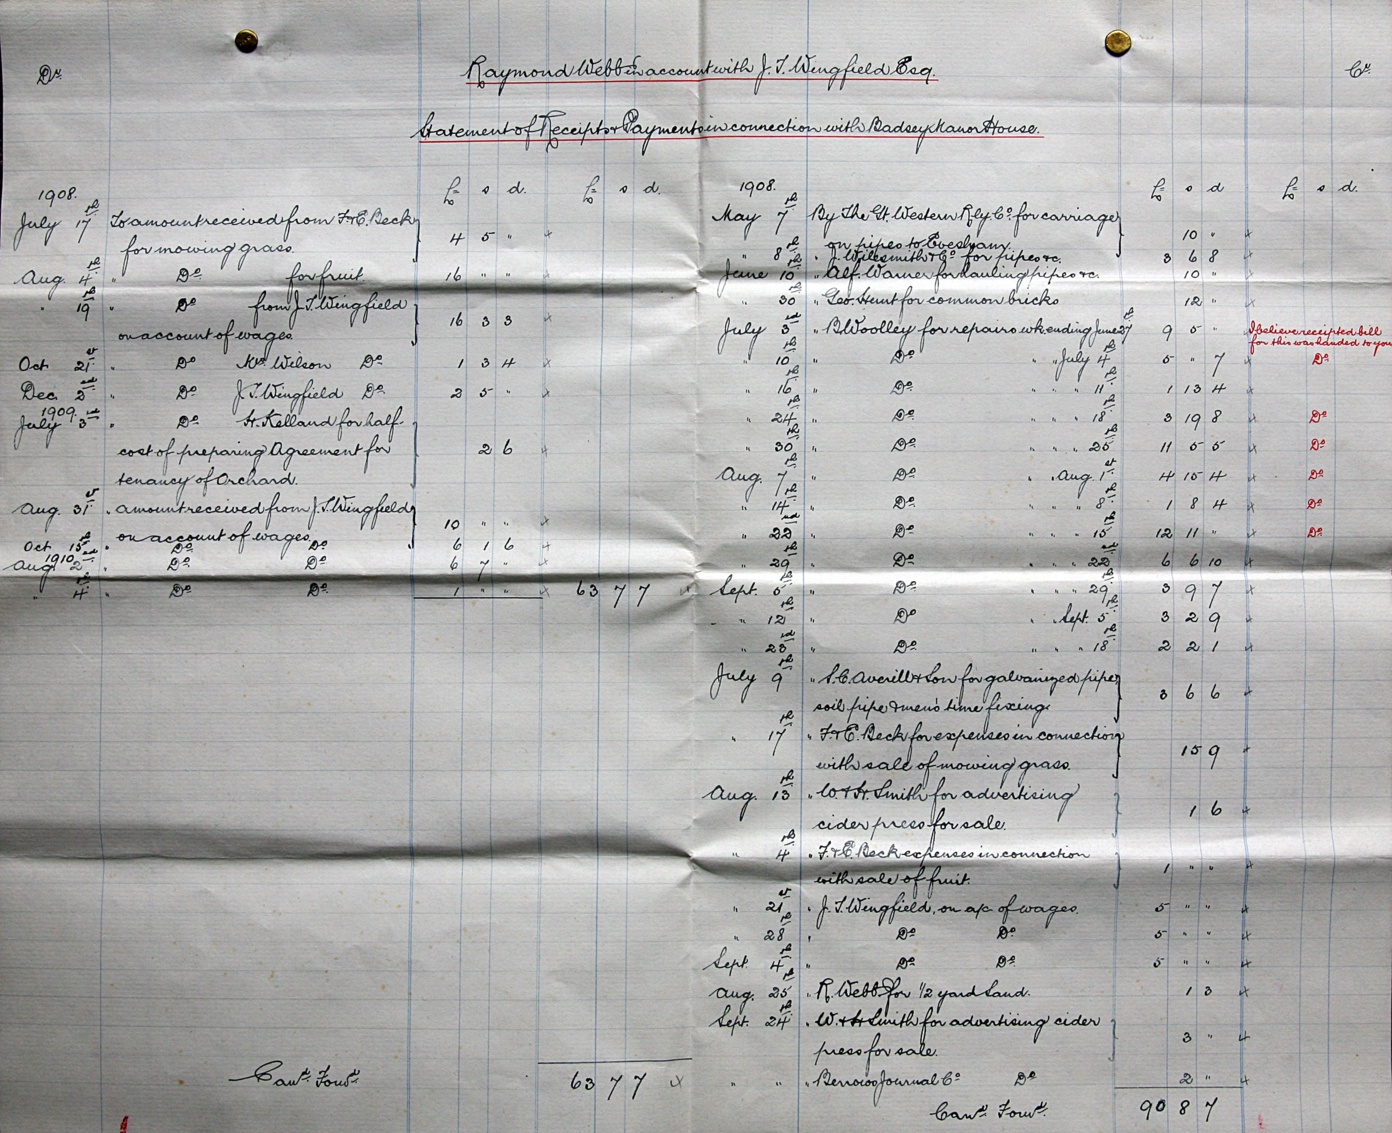 Dr. Raymond Webb in account with J. T. Wingfield Esq. Cr.
Statement of Receipts & Payments in connection with Badsey Manor House.
£ s d. £ s d.
1908.
July 17th To amount received from F. & E. Beck
for mowing grass. 4 5 " x
Aug. 4th " Do for fruit. 16 " " x
" 19th " Do from J. T. Wingfield
on account of wages. 16 3 3 x
Oct 21st " Do Mr. Wilson Do 1 3 4 x
Dec. 2nd " Do J. T. Wingfield Do 2 5 " x
1909.
July 3rd " Do H. Kelland for half
cost of preparing Agreement for 2 6 x
tenancy of Orchard.
Aug. 31st " amount received from J. T. Wingfield
on account of wages. 10 " " x
Oct 15th " Do Do 6 1 6 x
1910
Aug. 2nd " Do Do 6 7 " x
" 4th " Do Do 1 " " x 63 7 7 x
Card Ford 63 7 7 x
1908. £ s d £ s d.
May 7th By The Gt. Western Rly. Co. for carriage
on pipes to Evesham. 10 " x
" 8th " J. Wilesmith & Co. for pipes &c. 3 6 8 x
June 10th " Alf. Warner for hauling pipes &c. 10 " x
" 30th " Geo. Hunt for common bricks 12 " x
July 3rd " B. Woolley for repairs wk. ending June 27th 9 5 " x I believe receipted bill
for this was handed to you
" 10th " Do " " July 4th 5 " 7 x Do
" 16th " Do " " " 11th 1 13 4 x
" 24th " Do " " " 18th 3 19 8 x Do
" 30th " Do " " " 25th 11 5 5 x Do
Aug. 7th " Do " " Aug. 1st 4 15 4 x Do
" 14th " Do " " " 8th 1 8 4 x Do
" 22nd " Do " " " 15th 12 11 " x Do
" 29th " Do " " " 22nd 6 6 10 x
Sept. 5th " Do " " " 29th 3 9 7 x
" 12th " Do " " Sept. 5th 3 2 9 x
" 23rd " Do " " " 18th 2 2 1 x
July 9th " S. C. Averill & Son for galvanized pipe,
soil pipe & men's time fixing. 3 6 6 x
" 17th " F. & E. Beck for expenses in connection
with sale of mowing grass. 15 9 x
Aug. 13th " W. & H. Smith for advertising
cider press for sale. 1 6 x
" 4th " F. & E. Beck expenses in connection
with sale of fruit. 1 " " x
" 21st " J. T. Wingfield, on a/c of wages. 5 " " x
" 28th " Do Do 5 " " x
Sept. 4th " Do Do. 5 " " x
Aug. 25th " R. Webb for 1/2 yard Sand. 1 3 x
Sept. 24th " W. & H. Smith for advertising cider
press for sale. 3 " x
" " " Berrows Journal Co. Do 2 " x
Card Ford. 90 8 7